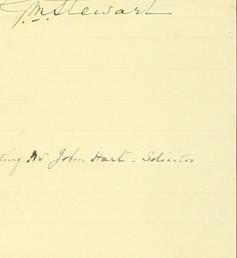 J. M. Stewart
ting Mr John Hart - Solicitor